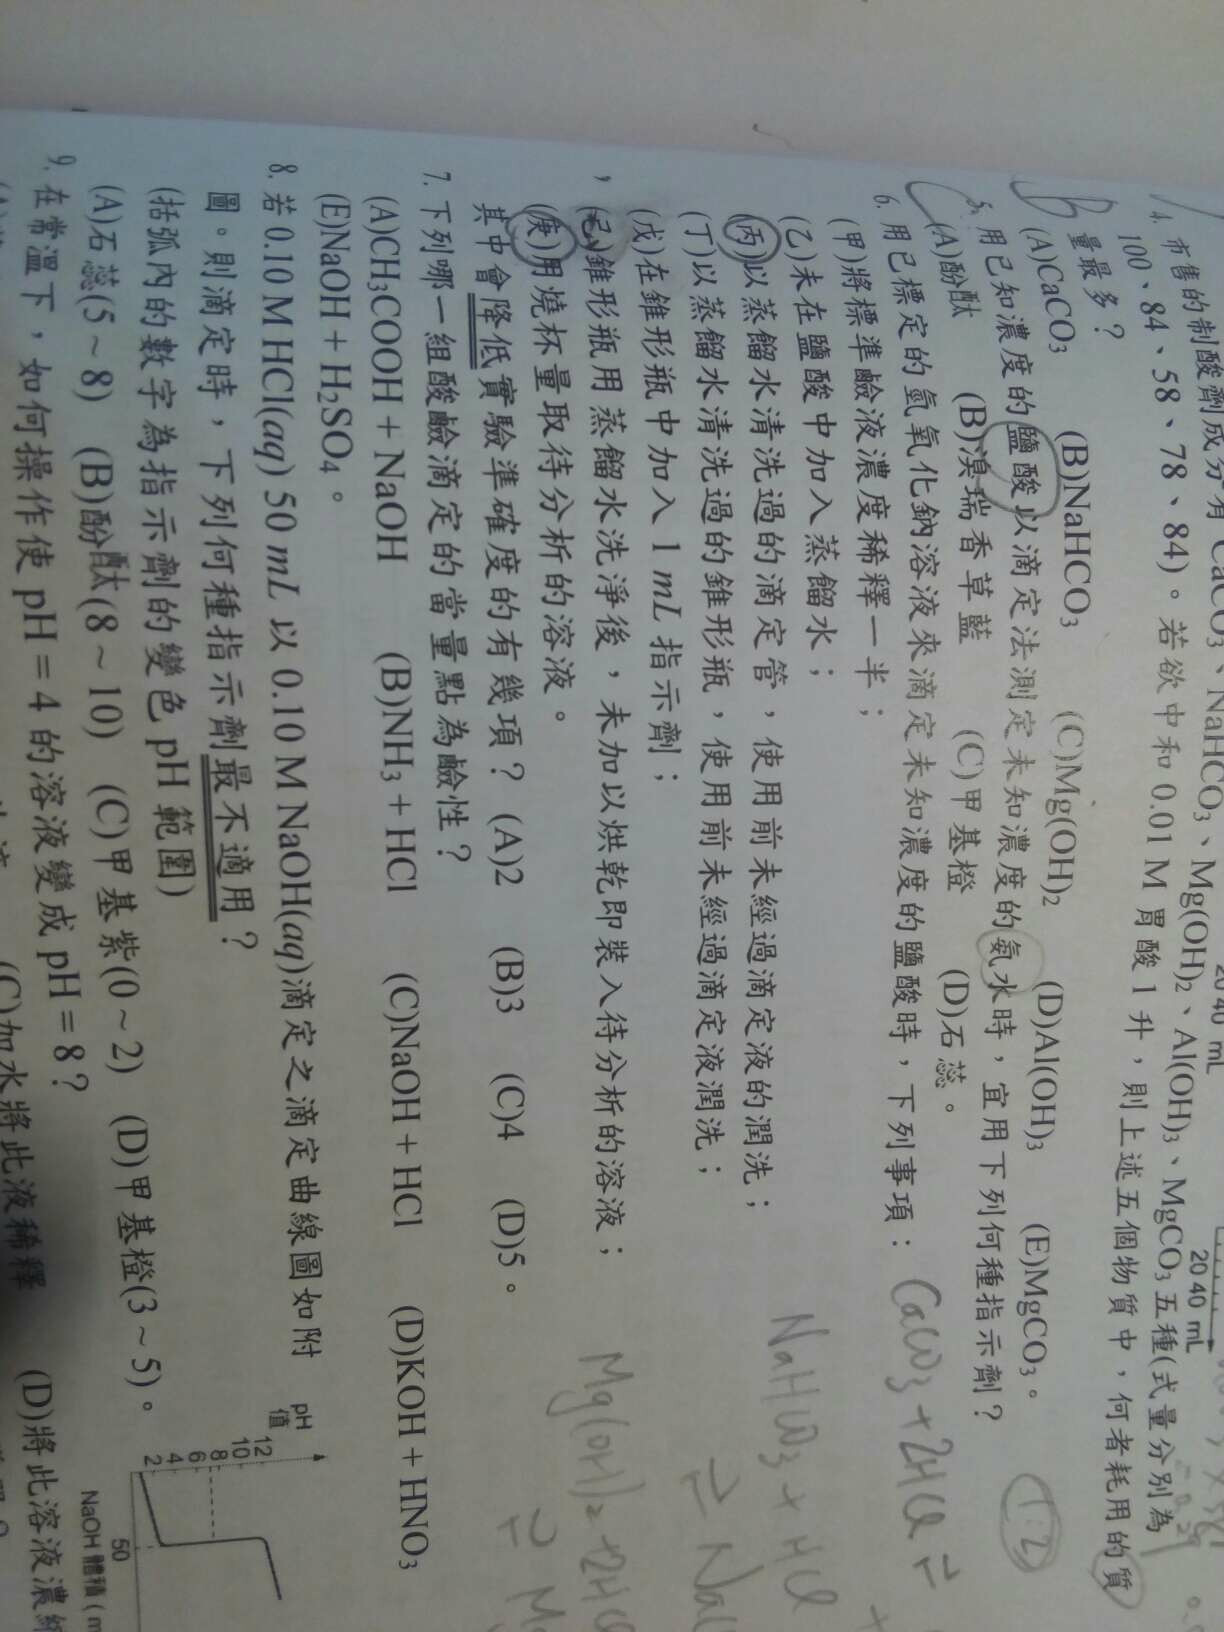 4. 市售的制酸劑成分有 CaCO₃、NaHCO₃、Mg(OH)₂、Al(OH)₃、MgCO₃五種(式量分別為
100、84、58、78、84)。若欲中和 0.01 M 胃酸 1 升，則上述五個物質中，何者耗用的質
量最多？
(A)CaCO₃ (B)NaHCO₃ (C)Mg(OH)₂ (D)Al(OH)₃ (E)MgCO₃。
5. 用已知濃度的鹽酸以滴定法測定未知濃度的氨水時，宜用下列何種指示劑？
(A)酚酞 (B)溴瑞香草藍 (C)甲基橙 (D)石蕊。
6. 用已標定的氫氧化鈉溶液來滴定未知濃度的鹽酸時，下列事項：
(甲)將標準鹼液濃度稀釋一半；
(乙)未在鹽酸中加入蒸餾水；
(丙)以蒸餾水清洗過的滴定管，使用前未經過滴定液的潤洗；
(丁)以蒸餾水清洗過的錐形瓶，使用前未經過滴定液潤洗；
(戊)在錐形瓶中加入 1 mL 指示劑；
(己)錐形瓶用蒸餾水洗淨後，未加以烘乾即裝入待分析的溶液；
(庚)用燒杯量取待分析的溶液。
其中會降低實驗準確度的有幾項？ (A)2 (B)3 (C)4 (D)5。
7. 下列哪一組酸鹼滴定的當量點為鹼性？
(A)CH₃COOH + NaOH (B)NH₃ + HCl (C)NaOH + HCl (D)KOH + HNO₃
(E)NaOH + H₂SO₄。
8. 若 0.10 M HCl(aq) 50 mL 以 0.10 M NaOH(aq)滴定之滴定曲線圖如附
圖。則滴定時，下列何種指示劑最不適用？
(括弧內的數字為指示劑的變色 pH 範圍)
(A)石蕊(5～8) (B)酚酞(8～10) (C)甲基紫(0～2) (D)甲基橙(3～5)。
9. 在常溫下，如何操作使 pH = 4 的溶液變成 pH = 8？
(C)加水將此液稀釋 (D)將此溶液濃縮
20 40 mL
20 40 mL
pH
值
12
10
8
6
4
2
50
NaOH 體積 (m
1:2
CaCO₃ + 2HCl ⇌
NaHCO₃ + HCl
⇌ NaCl
Mg(OH)₂ + 2HCl